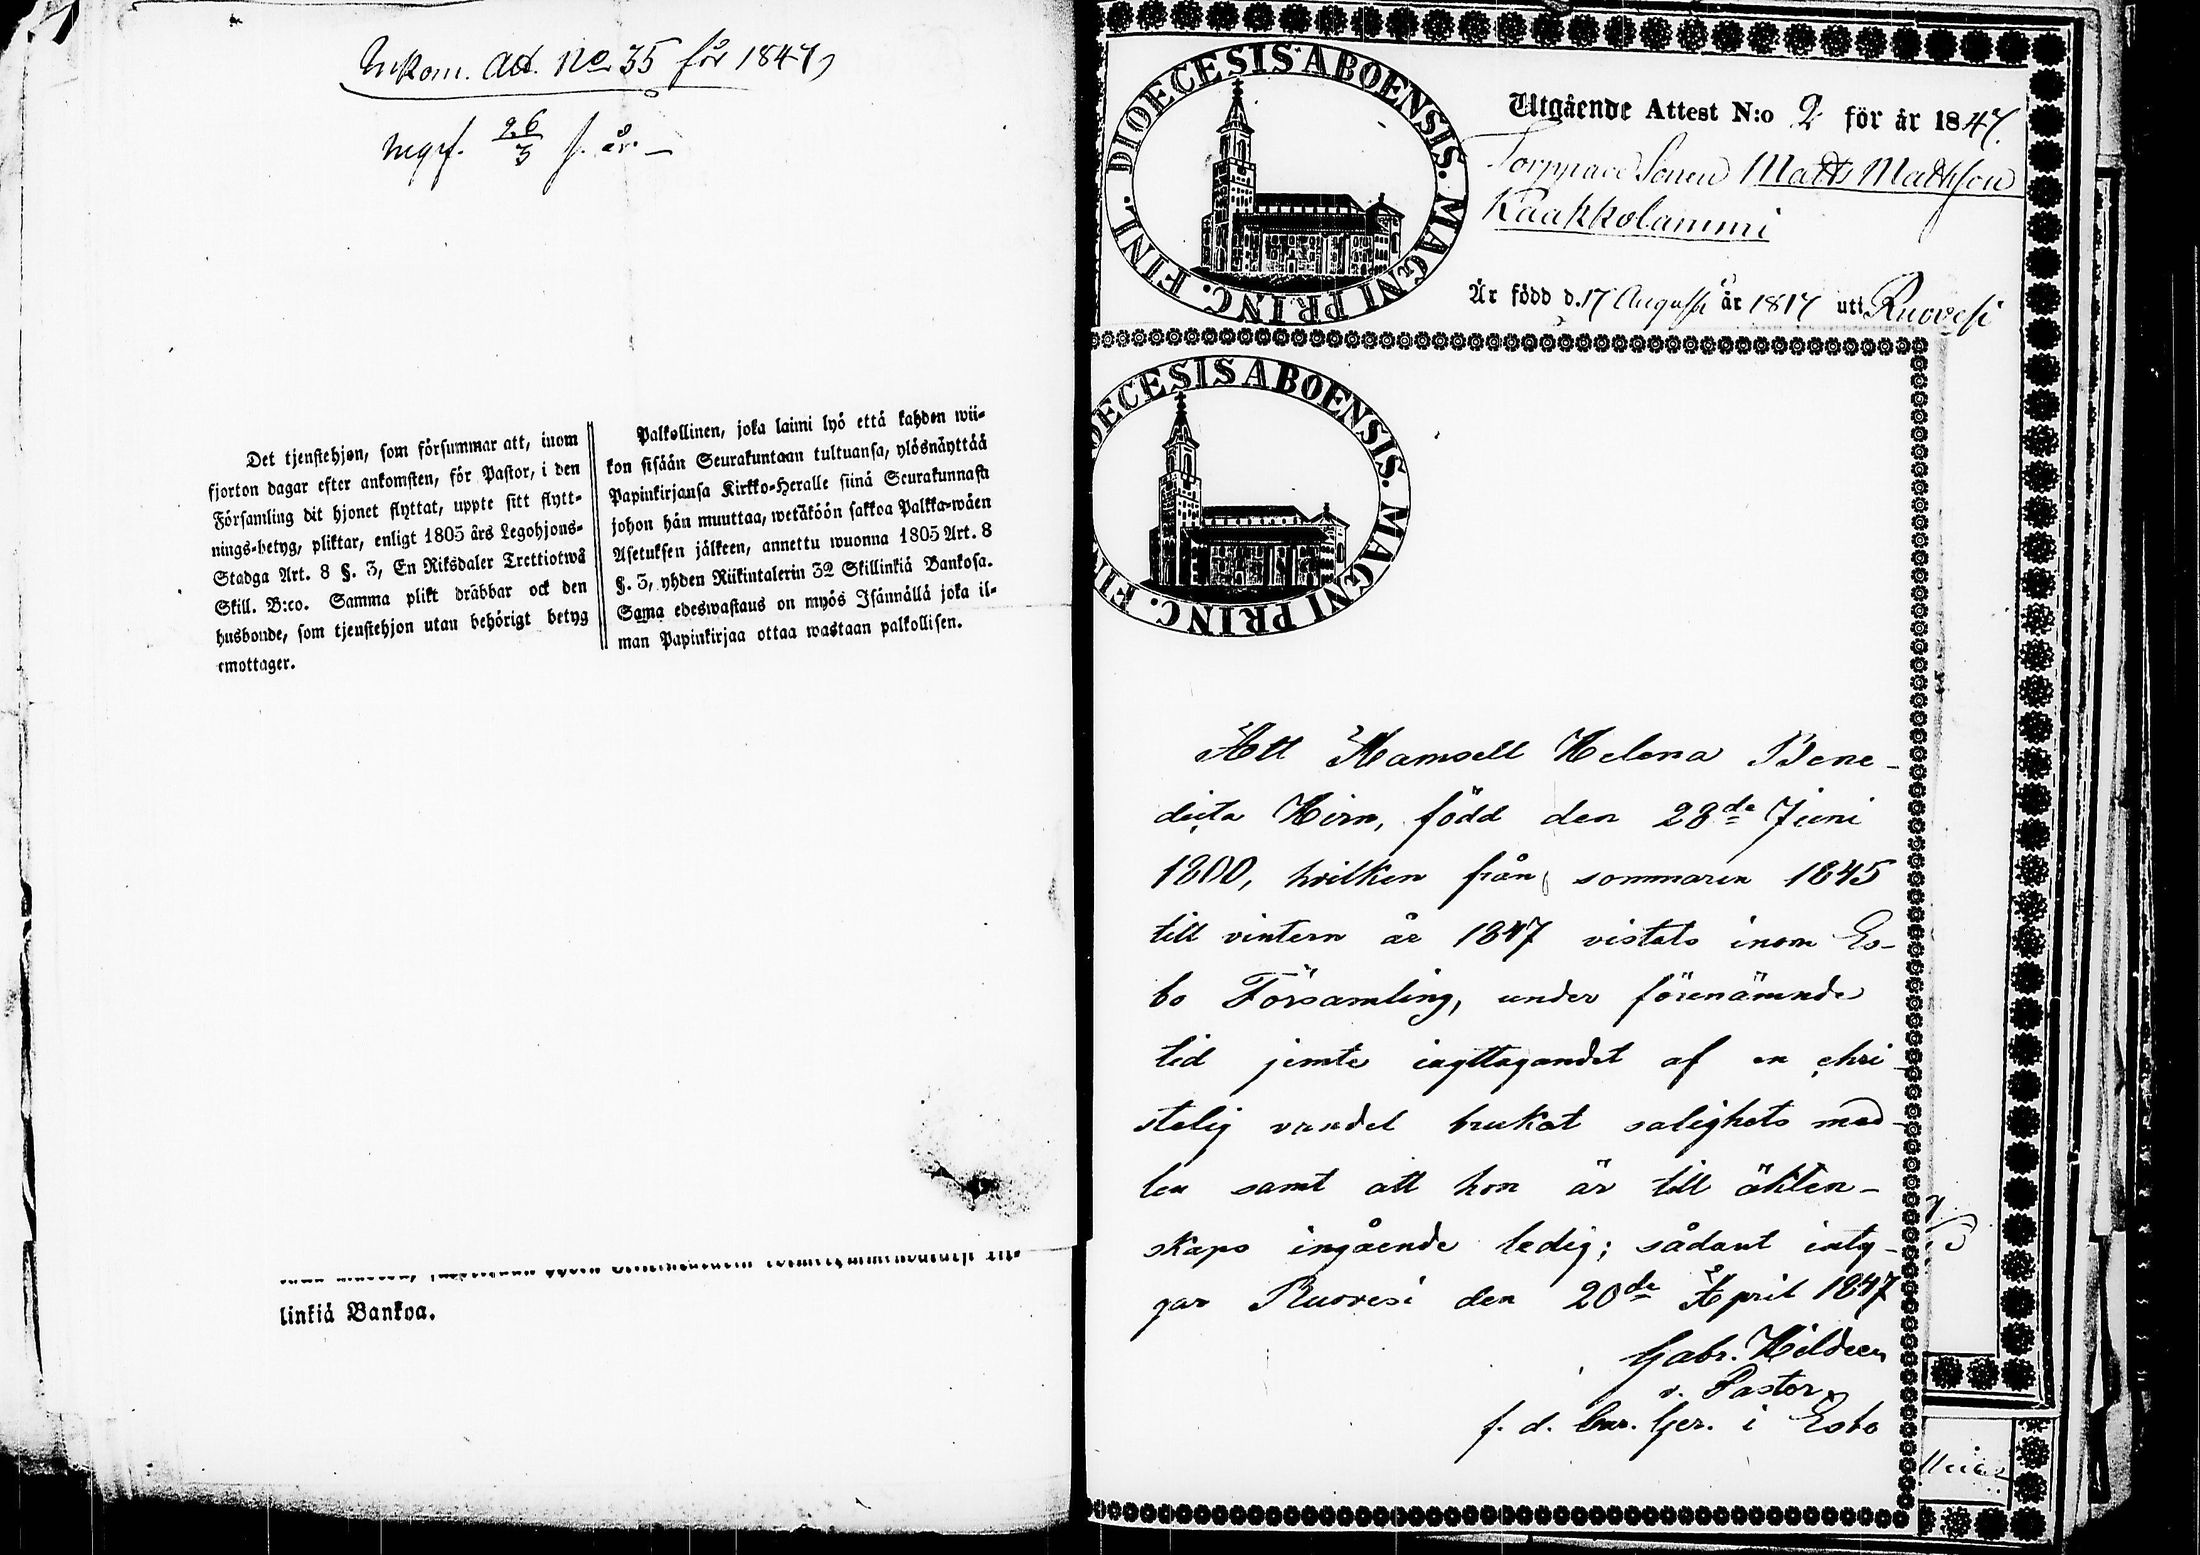 Inkom. Att. No 35 för 1847,
26
5 s. år.
Det tjenstehjon, som försummar att, inom
fjorton dagar efter ankomsten, för Pastor, i den
Församling dit hjonet flyttat, uppte sitt flytt-
nings-betyg, pliktar, enligt 1805 års Legohjons-
Stadga Art. 8 §. 3, En Riksdaler Trettiotwå
Skill. B:co. Samma plikt dräbbar ock den
husbonde, som tjenstehjon utan behörigt betyg
emottager.
Palkollinen, joka laimi lyö että kahden wii-
kon sisään Seurakuntaan tultuansa, ylösnäyttää
Papinkirjansa Kirkko-Heralle siinä Seurakunnasa
johon hän muuttaa, wetäköön sakkoa Palkka-wäen
Asetuksen jälkeen, annettu wuonna 1805 Art. 8
§. 3, yhden Riikintalerin 32 Skillinkiä Bankosa.
Sama edeswastaus on myös Isännällä joka il-
man Papinkirjaa ottaa wastaan palkollisen.
linkiä Bankoa.
DIOECESIS ABOENSIS. MAGNI PRINC. FINL.
Utgående Attest N:o 2 för år 1847.
Torppare Sonen Matts Mattsson
Kaakkolammi
Är född d. 17 Augusti år 1817 uti Ruovesi
OECESIS ABOENSIS. MAGNI PRINC. FI
Att Mamsell Helena Bene-
dicta Hirn, född den 28de Juni
1800, hvilken från sommaren 1845
till vintern år 1847 vistats inom Es-
bo Församling, under förenämnde
tid jemte iagttagandet af en chri-
stelig vandel brukat salighets med-
len samt att hon är till äkten-
skaps ingående ledig; sådant inty-
gar Ruovesi den 20de April 1847
Gabr. Hildeen
v. Pastor
f. d. Cur. Ger. i Esbo